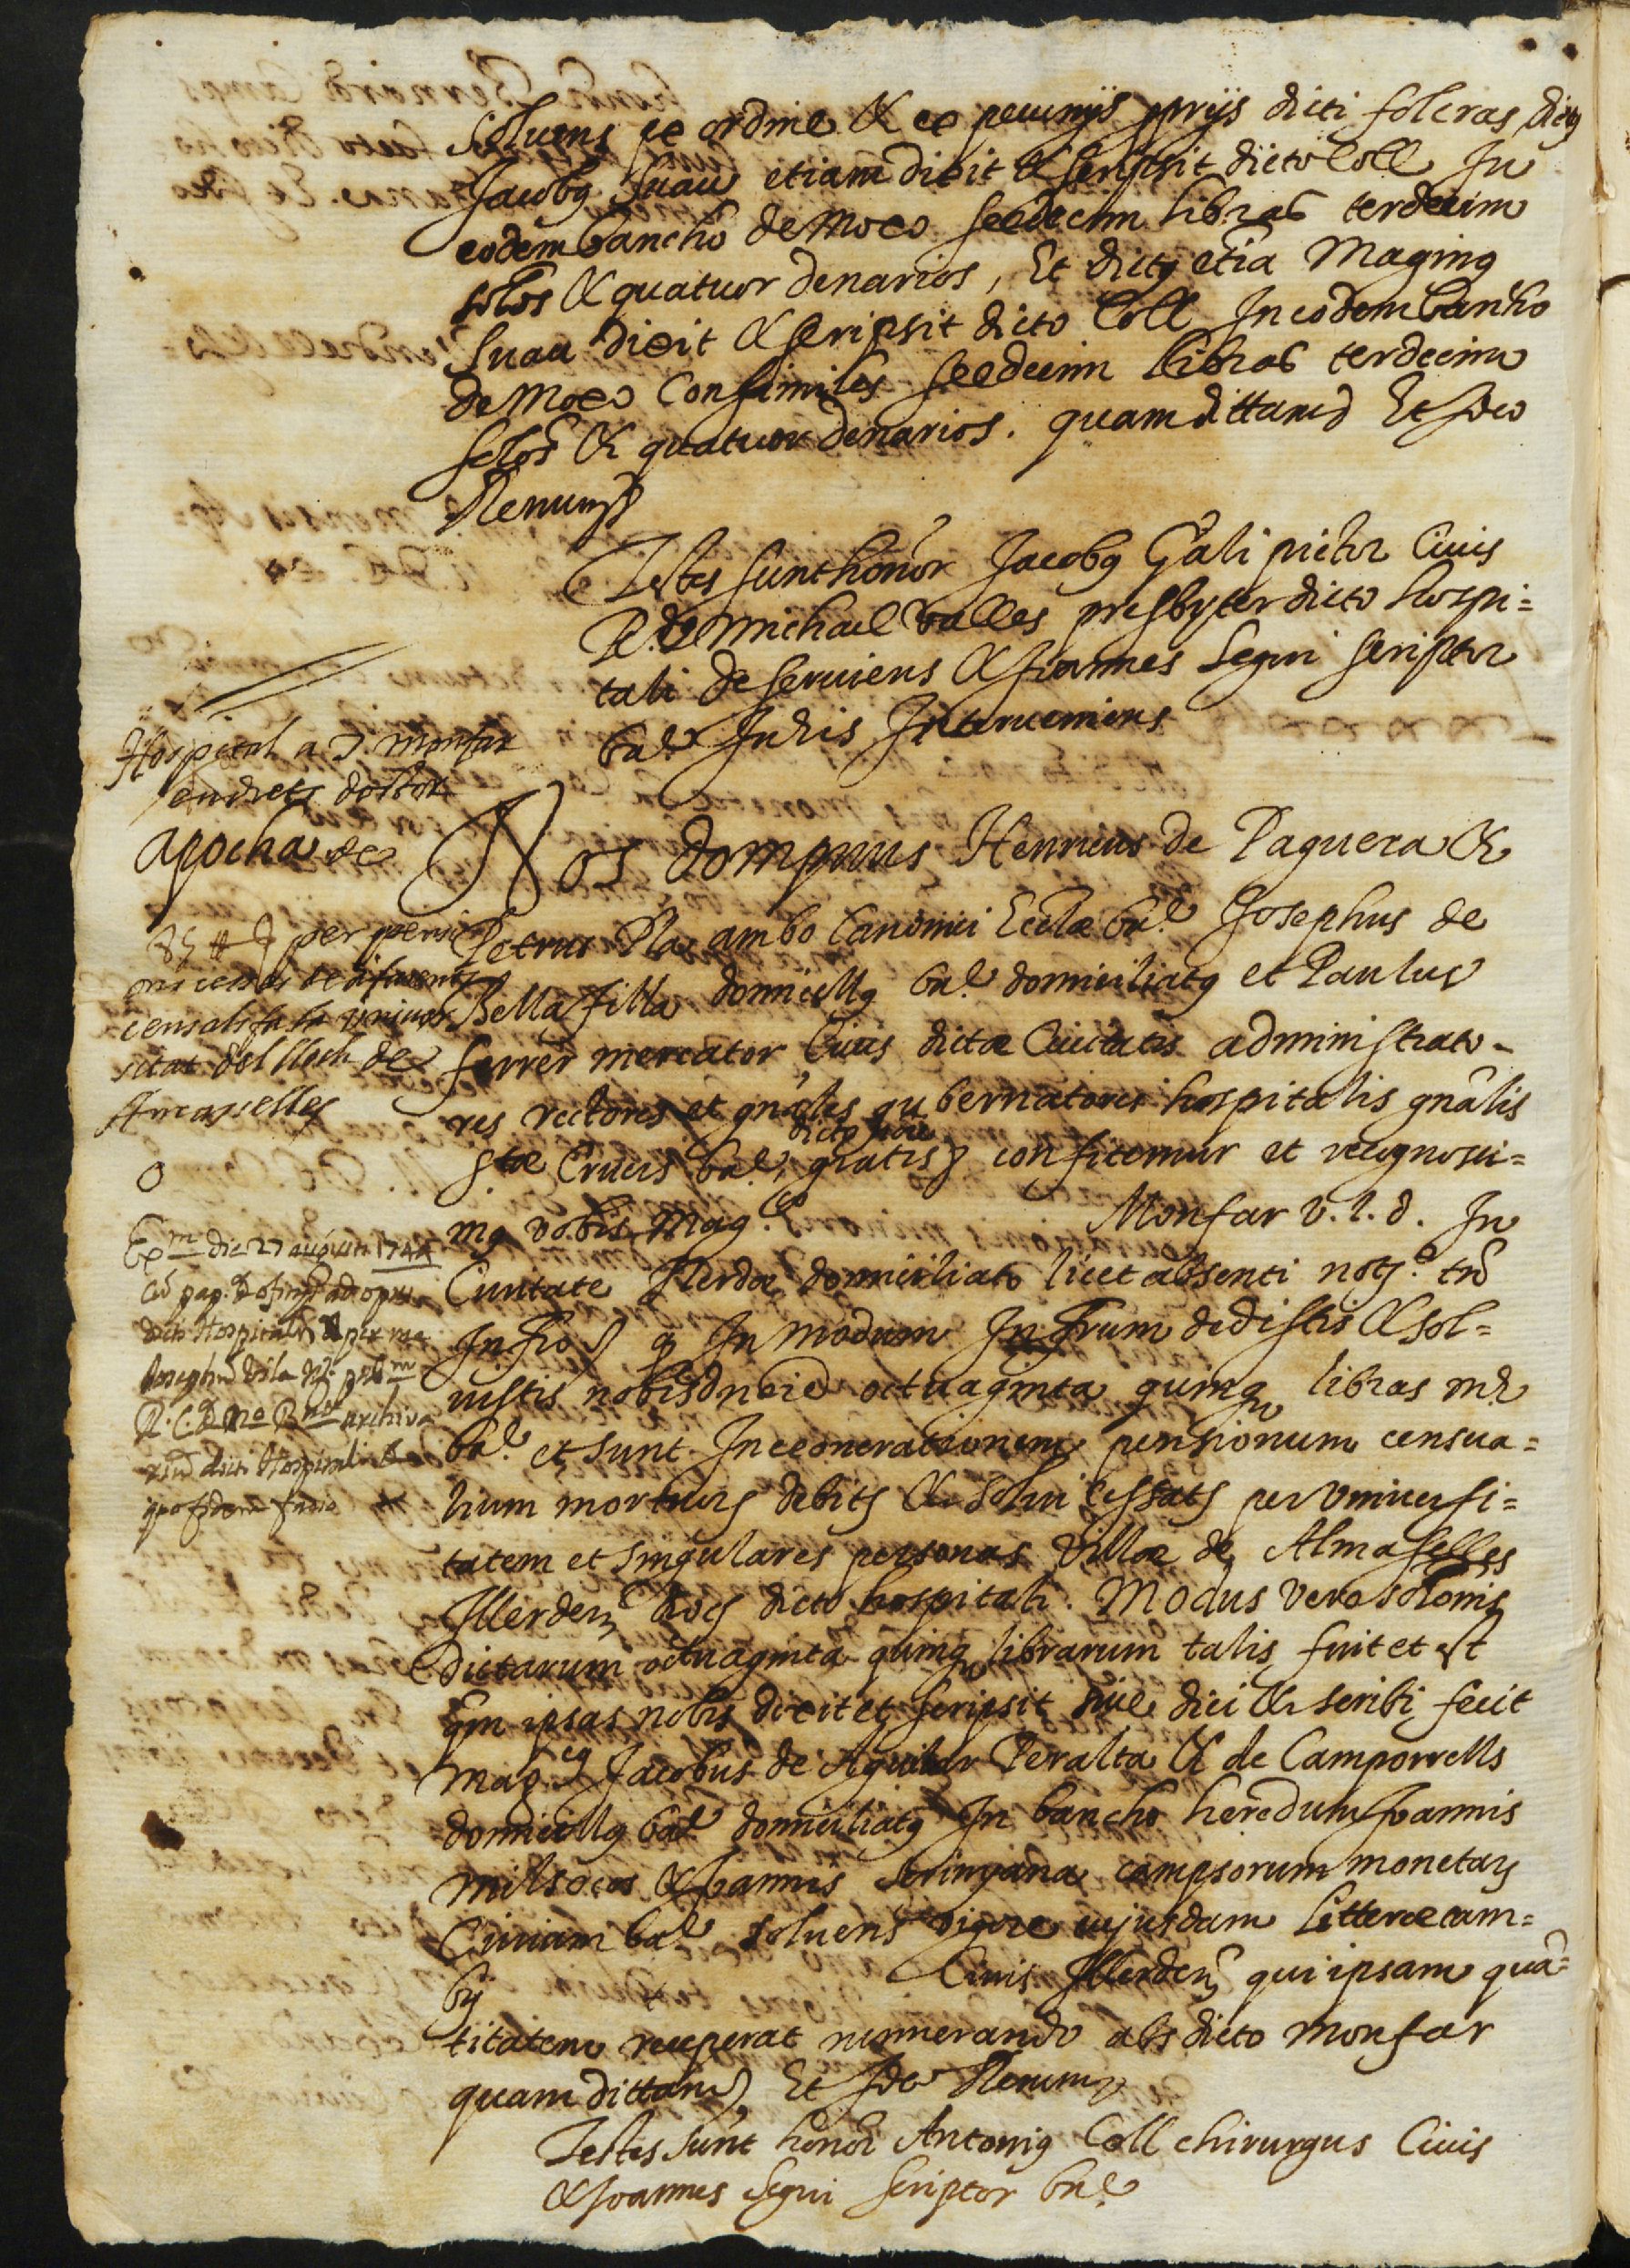 Soluens ex ordine & ex pecunijs pprijs dicti soleras dictus
Jacobus Suau etiam dixit & scripsit dicto Coll In
eodem bancho de Moxo sexdecim libras terdecim
solos & quatuor denarios, Et dictus etia Maginus
Suau dixit & scripsit dicto Coll In eodem bancho
de Moxo Consimiles sexdecim libras terdecim
solos & quatuor denarios. quam dittam Et Ideo
Renun
Testes sunt honor Jacobus Gali pictor Ciuis
R. do Michael Valles presbyter dicto hospi=
tali deseruiens & Joannes Segui scriptor
bar Intis Interueniens
Hospital a J. monfar
en drets doctor
Apocha de
85 ll per pensi
ons cessades de diferents
censals fa la vniver
sitat del lloch de
Almasselles
O
Ex.m die 27 augusti 1744
cu pap. ad opus
dicti Hospitalis per me
Josephu Vila not. pub.m
archiva
riu dicti Hospitalis &
quo fidem facio
Nos dompnus Henricus de Paguera &
Petrus Pla ambo Canonici Eccłæ bar Josephus de
Bellafilla domicellus bar domiciliatus et Paulus
ferrer mercator Ciuis dictæ Ciuitatis administrato-
res rectores et gnâles gubernatores hospitalis gnâlis
Stæ Crucis bar, gratis confitemur et recognosci=
mus vobis Mag.co Monfar v. i. d. In
Ciuitate Ilerdæ domiciliato licet absenti notº. tn̄
Infro q In modum Infrum dedistis & sol=
uistis nobis octuaginta quinq libras mᵉ
bar et sunt In exonerationem pensionum censua=
lium mortuis debits & solui cessats per Vniuersi=
tatem et singulares personas Villæ de Almaselles
Illerden dioc dicto hospitali. Modus vero solonis
dictarum octuaginta quinq librarum talis fuit et est
Qm ipsas nobis dixit et scripsit siue dici & scribi fecit
mag.cus Jacobus de Aguilar Peralta & de Camporrells
domicellus bar domiciliatus In bancho heredum Joannis
milsocos & Joannis serinyana campsorum monetas
Ciuium bar soluens vigore cujusdam Litteræ cam=
bij Ciuis Illerden qui ipsam quā=
titatem receperat numerando abs dicto monfar
quam dittam, Et Ideo Renun
Testes sunt honor Antonius Coll chirurgus Ciuis
& Joannes segui scriptor bar